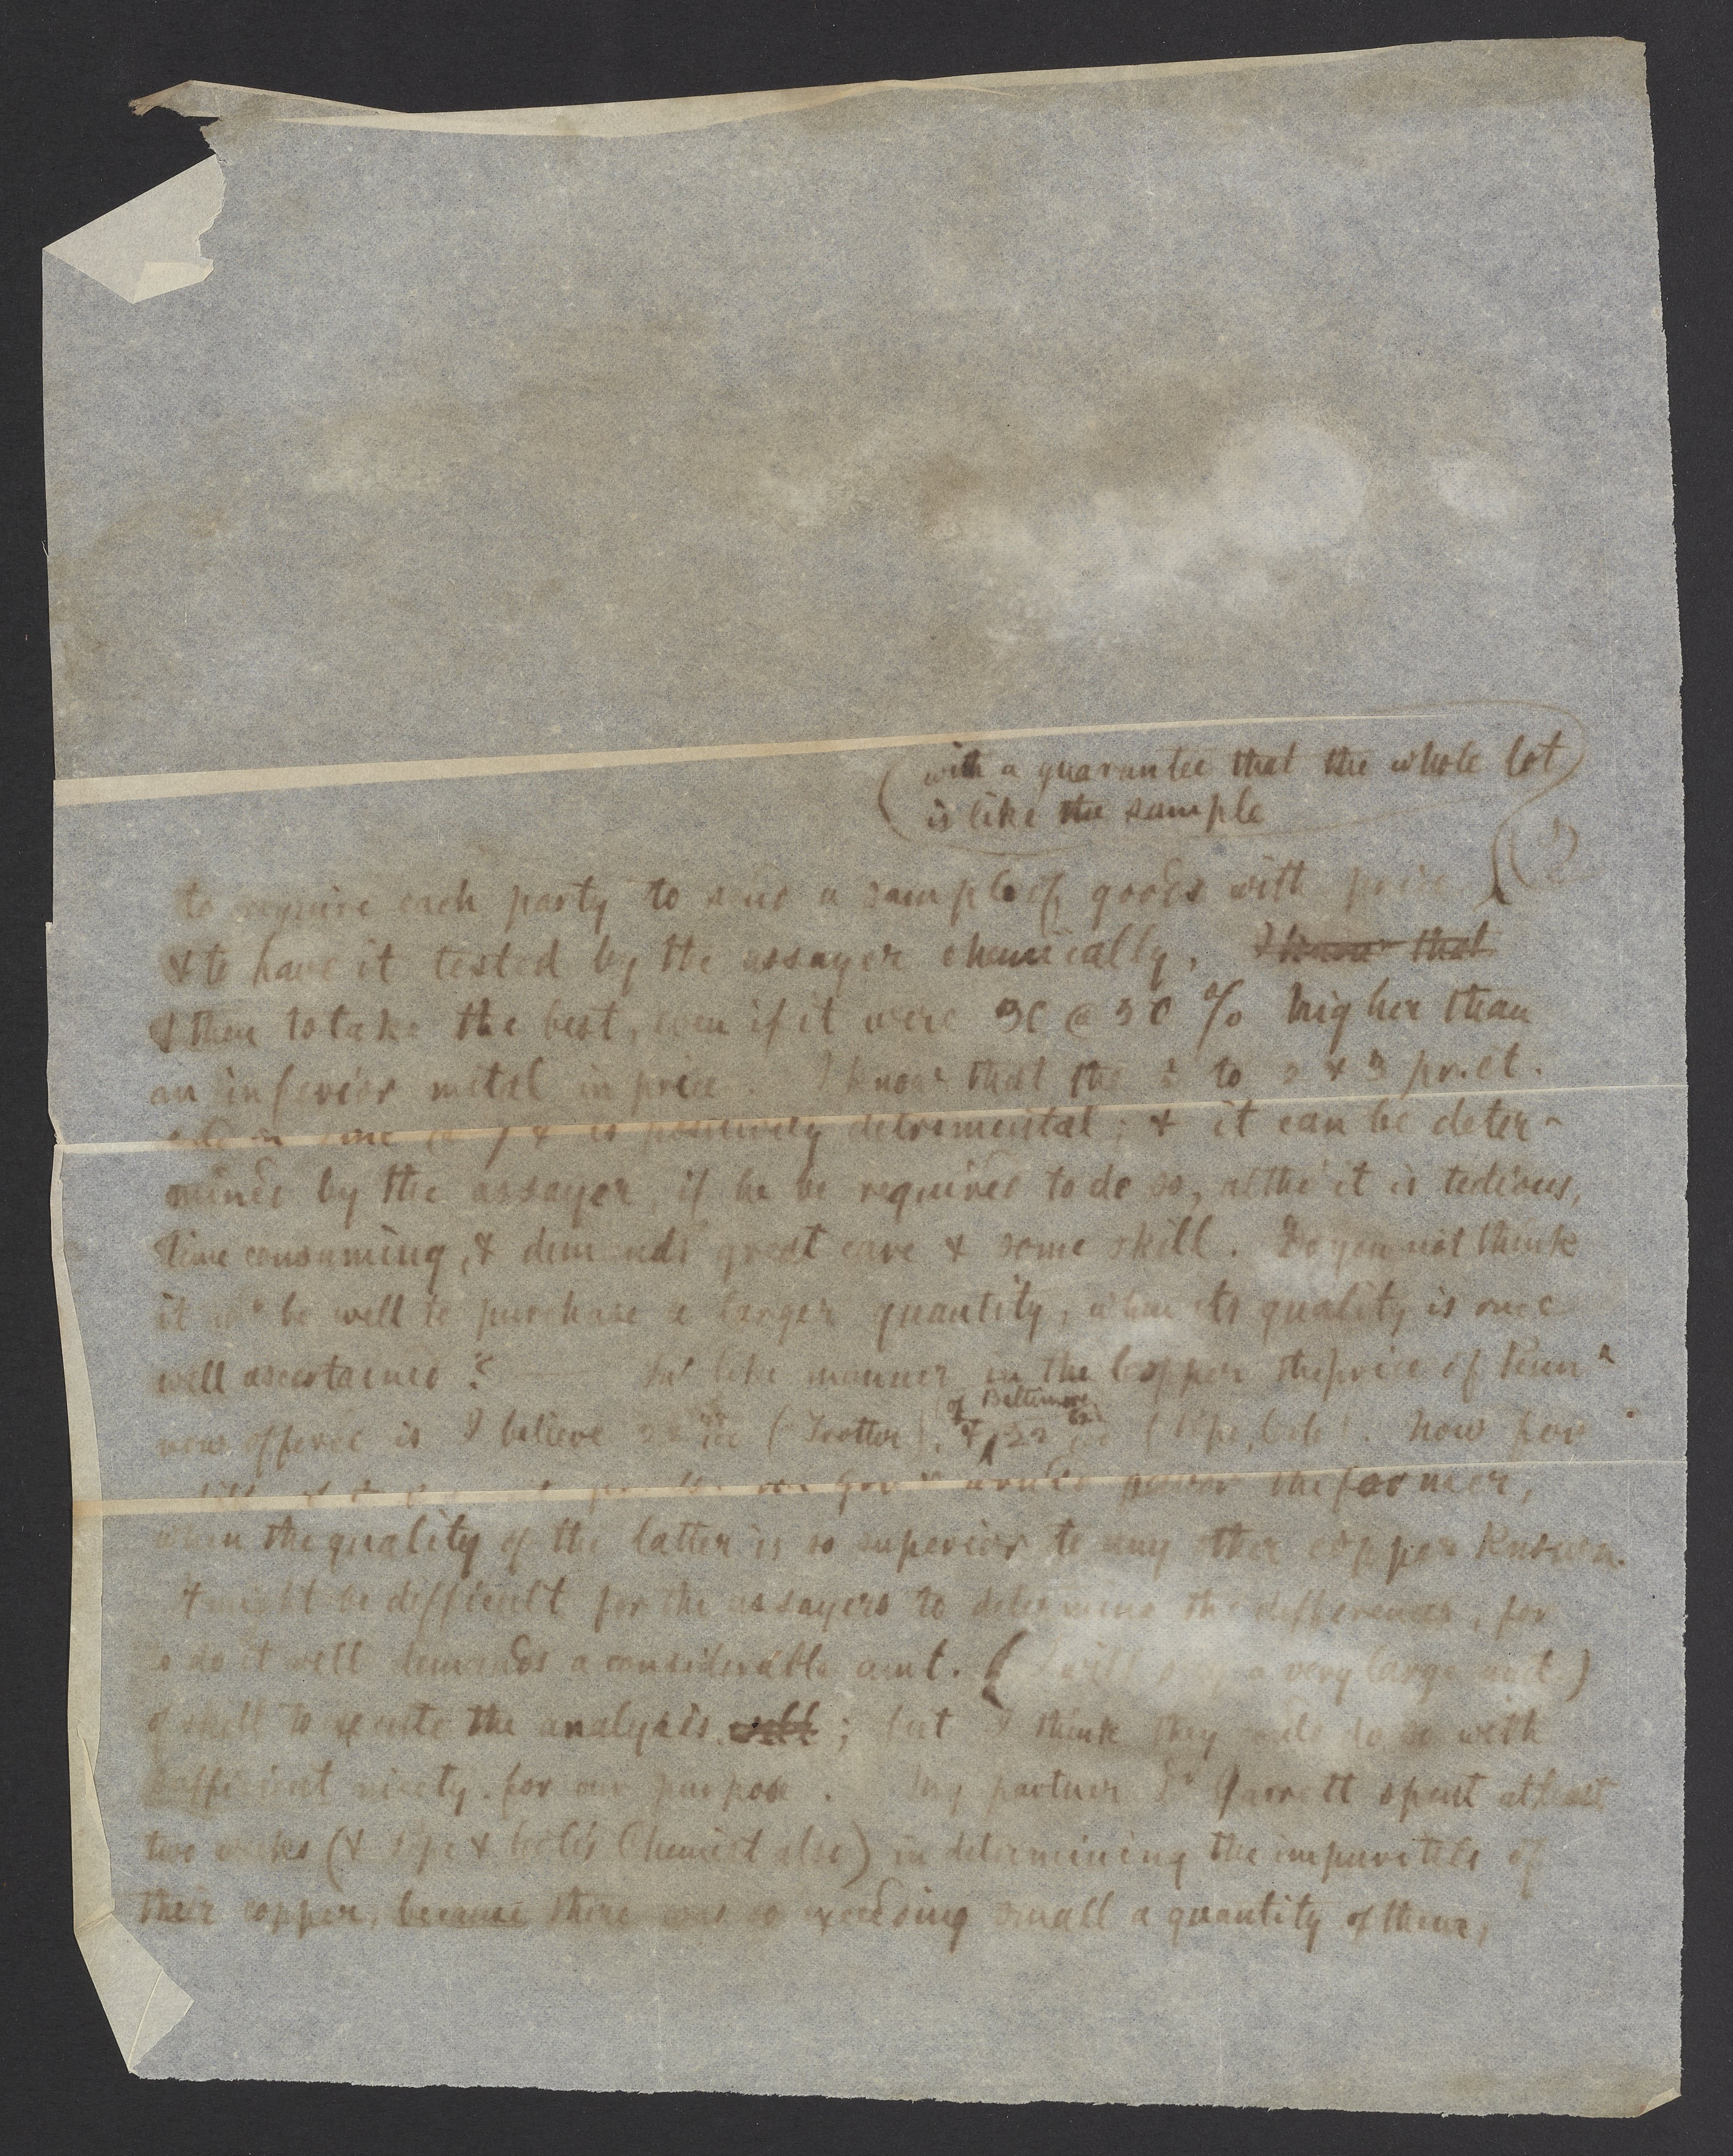 with a guarantee that the whole lot
is like the sample
to require each party to send a sample of goods with price
& to have it tested by the assayer chemically. I know that
& then to take the best, even if it were 30 @ 50 % higher than
an inferior metal in price. I know that the to 2 & 3 pr. ct.
is positively detrimental; & it can be deter-
mined by the assayer, if he be required to do so, altho' it is tedious,
time consuming, & demands great care & some skill. Do you not think
it wd be well to purchase a larger quantity, when its quality is once
well ascertained? — In like manner in the Copper the price of
now offered is I believe 22 (Trotter), & 22 (Pope, Cole). Now for
of Baltimore
the former,
when the quality of the latter is so superior to any other copper known.
It might be difficult for the assayers to determine the differences, for
to do it well demands a considerable amt. (I will say a very large amt.)
of skill to execute the analysis well; but I think they do so with
sufficient nicety for our purpose. My partner Dr Garrett spent at least
two weeks (& Pope & Cole's Chemist also) in determining the impurities of
their copper, because there was so exceeding small a quantity of them,